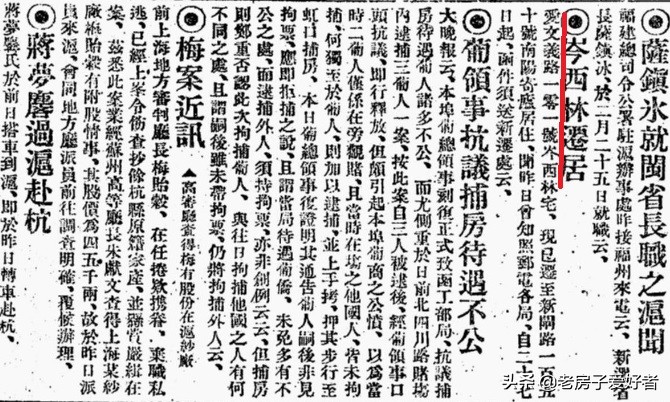 薩鎮氷就閩省長職之滬聞
福建總司令公署駐滬辦事處昨接福州來電云、新選省
長薩鎮冰、於二月二十五日就職云、
岑西林遷居
愛文義路一零一號岑西林宅、現已遷至新閘路一百
十號南陽寄廬居住、聞昨日曾知照郵電各局、自二十七
日起、函件須送新遷處云、
葡領事抗議捕房待遇不公
大晚報云、本埠葡總領事刻復正式致函工部局、抗議捕
房待遇葡人諸多不公、而尤側重於日前北四川路賭塲
內逮捕三葡人一案、按此案自三人被逮後、經葡領事口
頭抗議、即行釋放、但頗引起本埠葡商之公憤、以為當
時二葡人僅係在旁觀賭、且當時在塲之他國人、皆未拘
捕、何獨至於葡人、則加以逮捕、並上手拷、押其步行至
虹口捕房、本日葡總領事復證明其通告葡人嗣後非見
拘票、應即拒捕之說、且謂當局待遇葡僑、未免多有不
公之處、而逮捕外人、須持拘票、亦非創例云云、但捕房
則鄭重否認此次拘捕葡人、與往日拘捕他國之人有何
不同之處、且謂嗣後雖未帶拘票、仍將拘捕外人云、
梅案近訊
▲高審廳查得梅有股份在滬紗廠
前上海地方審判廳長梅詒穀、在任捲欵携眷、棄職私
逃、已經上峯令飭查抄餘杭縣原籍家產、並懸賞嚴緝在
案、茲悉此案業經蘇州高等廳長朱獻文查得上海某紗
廠梅詒穀有附股情事、其股價為四五千兩、故於昨日派
員來滬、會同地方廳派員前往調查明確、覆候辦理、
蔣夢麐過滬赴杭
蔣夢麐氏於前日搭車到滬、即於昨日轉車赴杭、
头条 @老房子爱好者